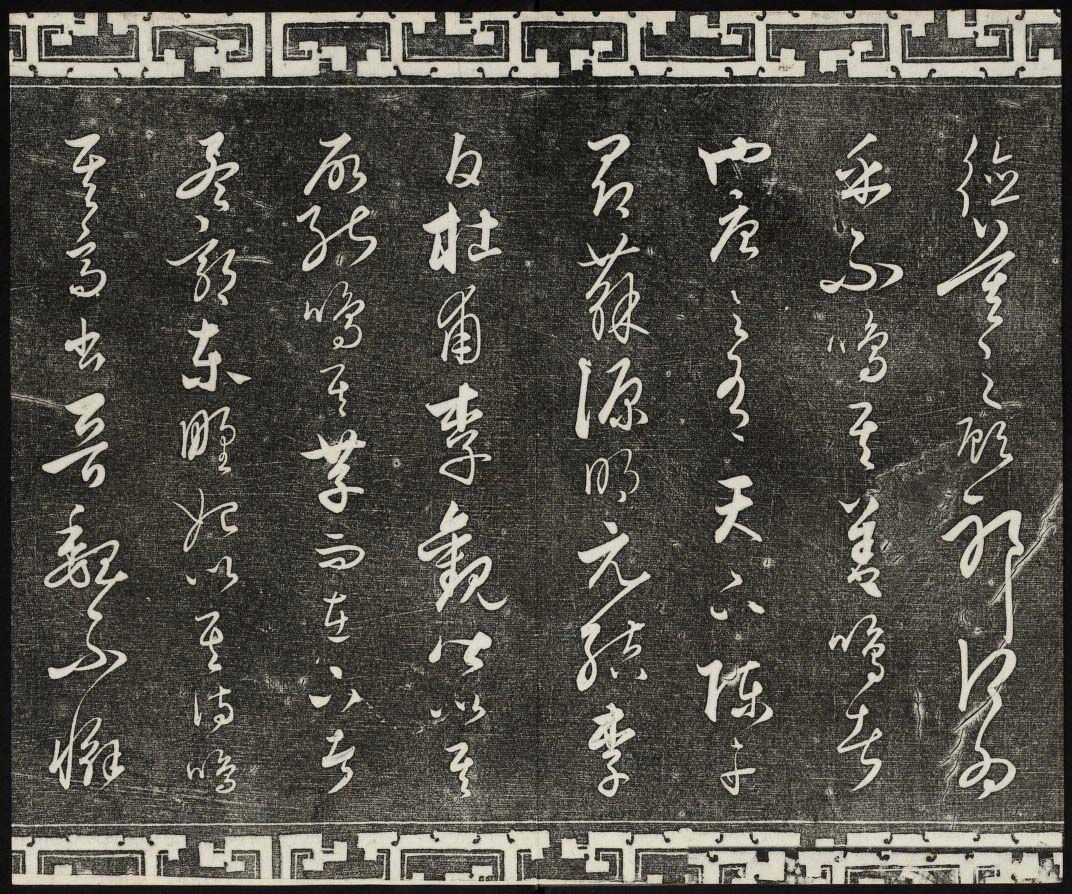 德莫之顧邪何為
乎不鳴其善鳴者
也唐之有天下陳子
昂蘇源明元結李
白杜甫李觀皆以其
所能鳴其而在下者
孟郊東野始以其詩鳴
其高出晉魏不懈